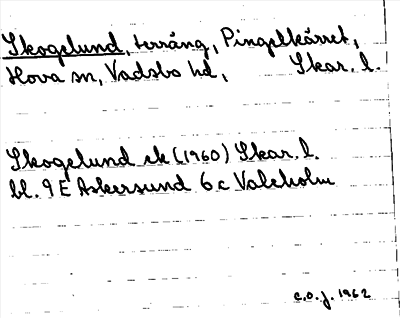 Skogelund, terräng, Pingelkärret,
Hova sn, Vadsbo hd, Skar. l.
Skogelund ek (1960) Skar. l.
bl. 9 E Askersund 6 c Valeholm
C.O.J. 1962